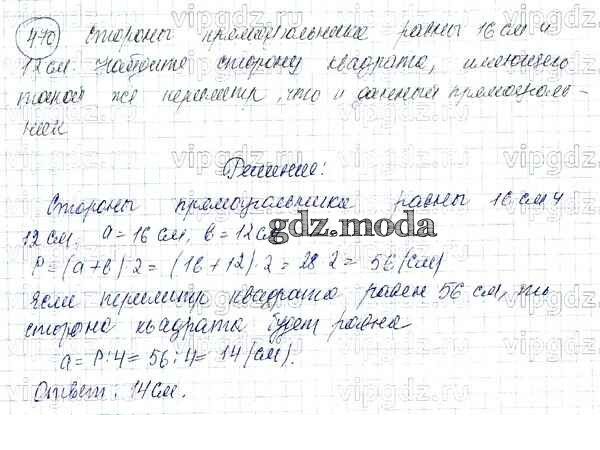 470 Стороны прямоугольника равны 16 см и
12 см. Найдите сторону квадрата, имеющего
такой же периметр, что и данный прямоуголь-
ник
Решение:
Стороны прямоугольника равны 16 см и
12 см. a = 16 см, b = 12 см
gdz.moda
P = (a + b) · 2 = (16 + 12) · 2 = 28 · 2 = 56 (см)
Если периметр квадрата равен 56 см, то
сторона квадрата будет равна
a = P : 4 = 56 : 4 = 14 (см).
Ответ: 14 см.